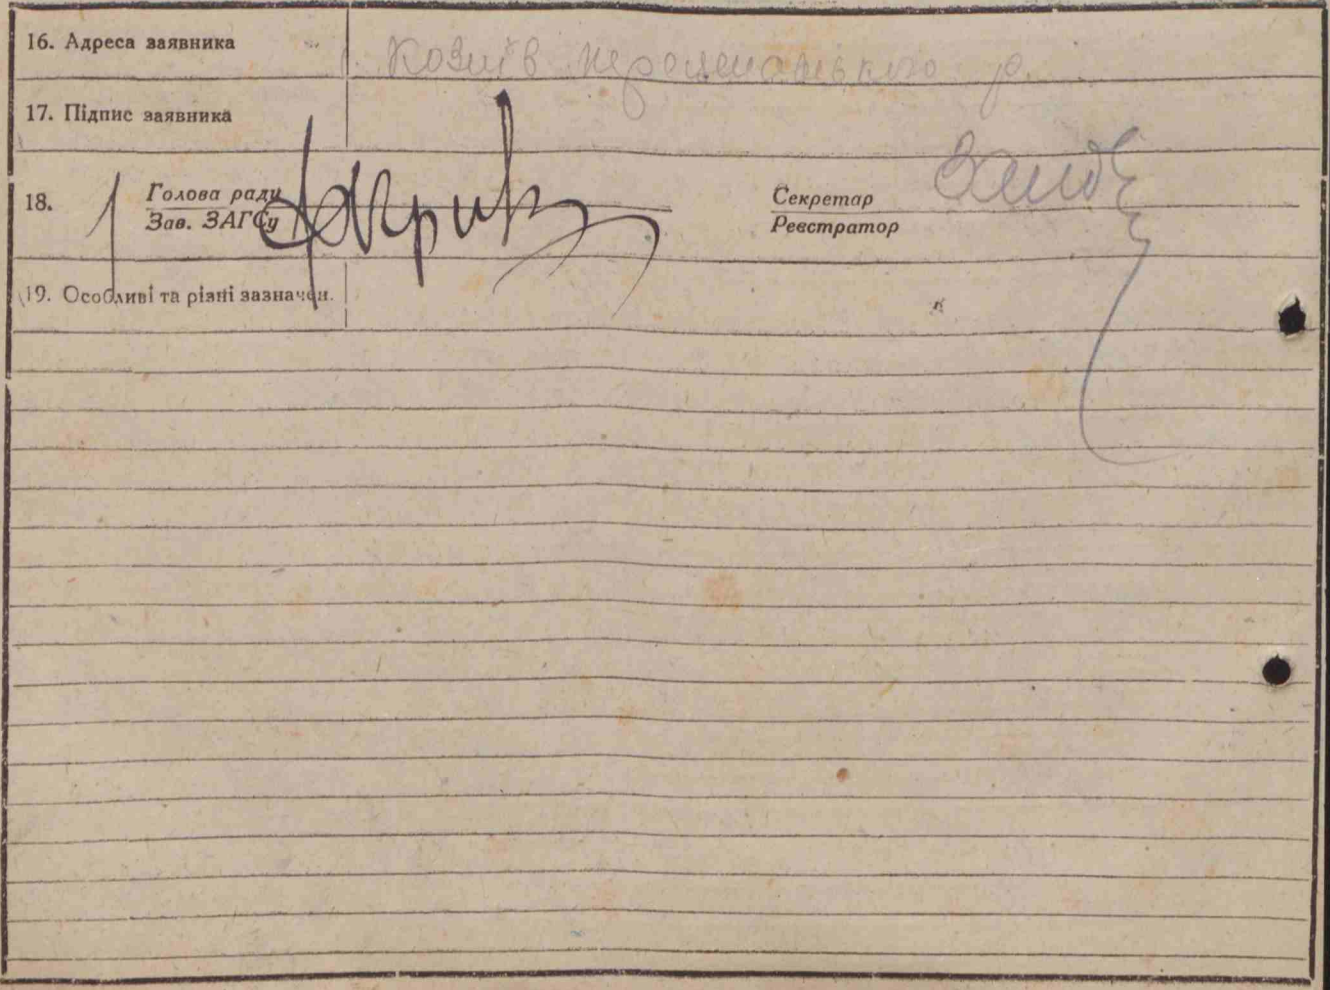 16. Адреса заявника Козиїв
17. Підпис заявника
18. Голова ради Секретар
Зав. ЗАГСу Реєстратор
19. Особливі та різні зазначен.